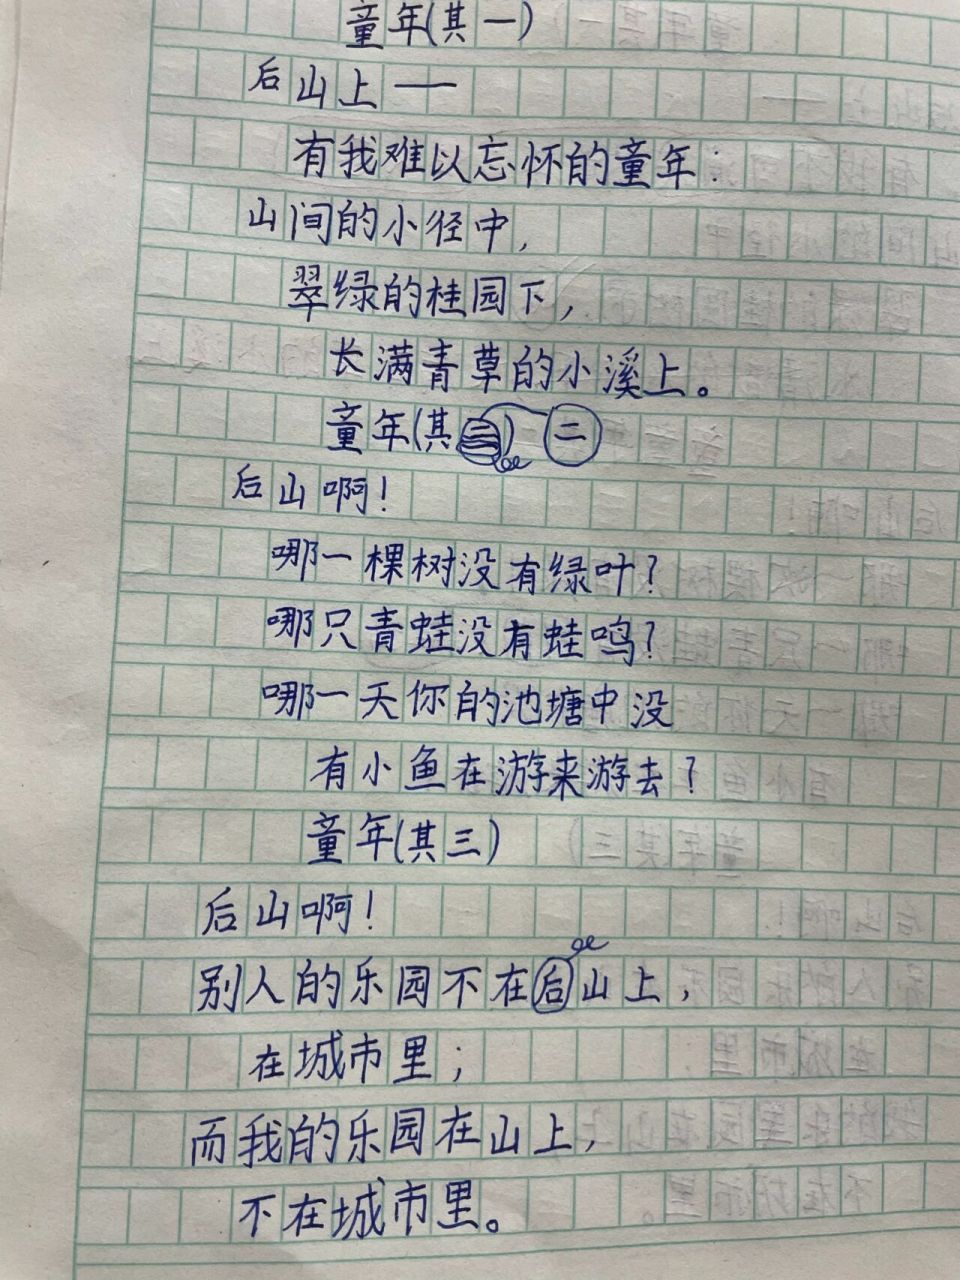 童年(其一)
后山上——
有我难以忘怀的童年:
山间的小径中,
翠绿的桂园下,
长满青草的小溪上。
童年(其二)
后山啊!
哪一棵树没有绿叶?
哪只青蛙没有蛙鸣?
哪一天你的池塘中没
有小鱼在游来游去?
童年(其三)
后山啊!
别人的乐园不在后山上,
在城市里;
而我的乐园在山上,
不在城市里。